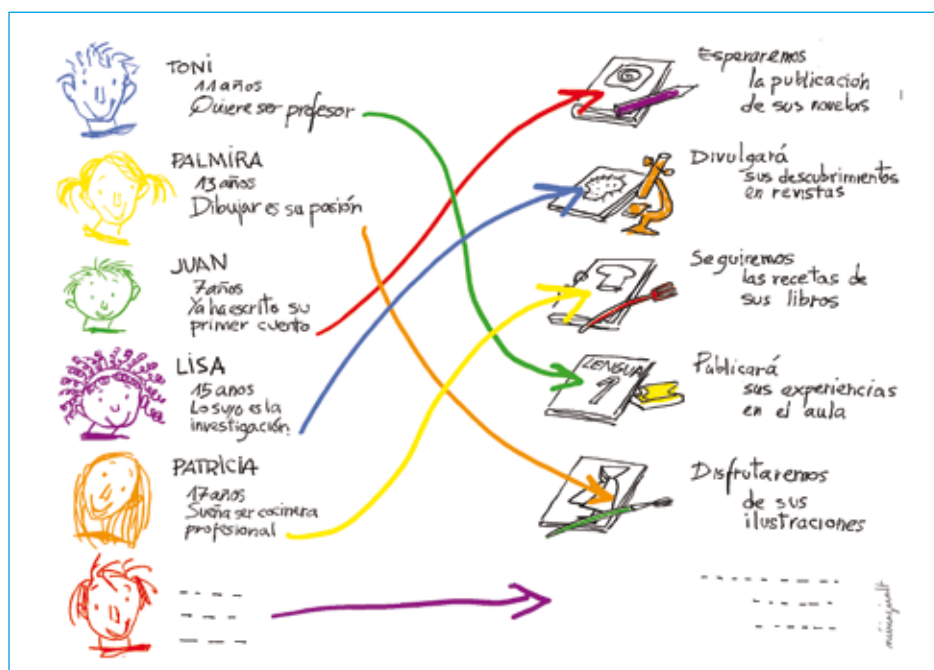 TONI
11 años
Quiere ser profesor
PALMIRA
13 años
Dibujar es su pasión
JUAN
7 años
Ya ha escrito su
primer cuento
LISA
15 años
Lo suyo es la
investigación.
PATRICIA
17 años
Sueña ser cocinera
profesional
Esperaremos
la publicación
de sus novelas
Divulgará
sus descubrimientos
en revistas
Seguiremos
las recetas de
sus libros
LENGUA
1
Publicará
sus experiencias
en el aula
Disfrutaremos
de sus
ilustraciones